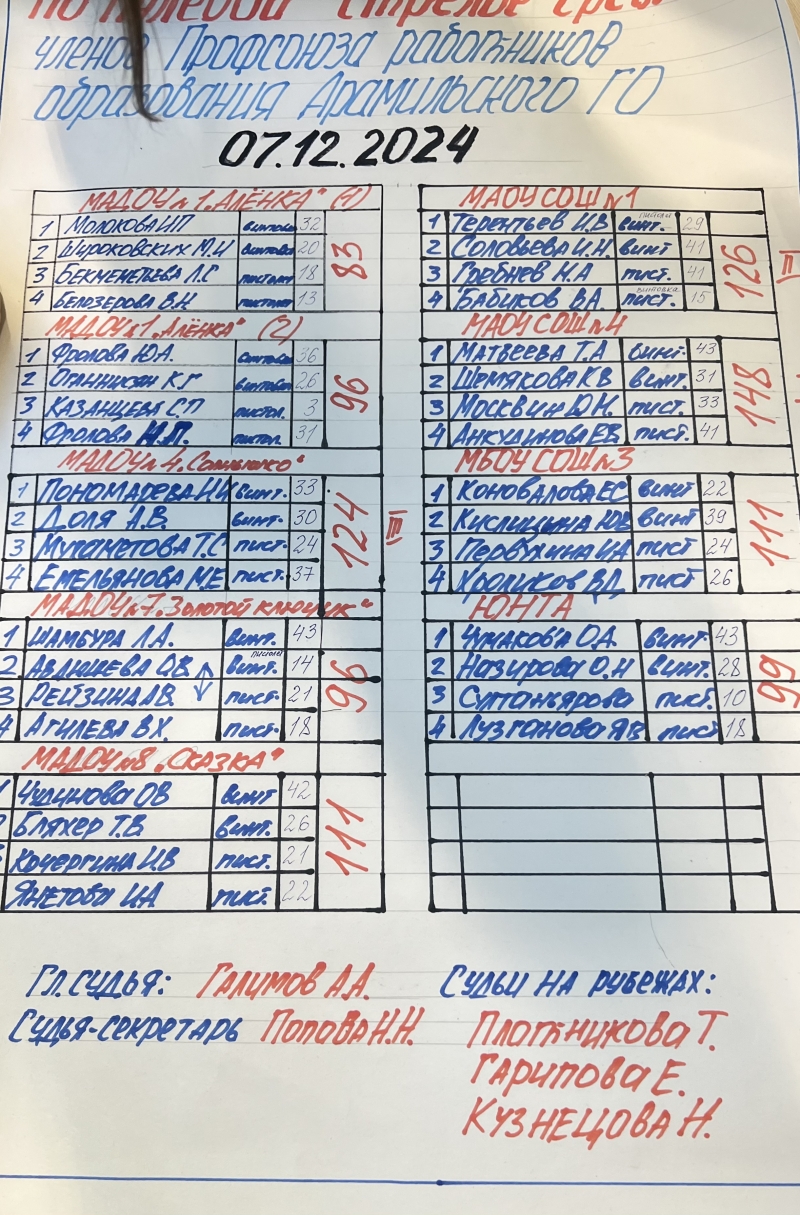 по пулевой стрельбе среди
членов Профсоюза работников
образования Арамильского ГО
07.12.2024
МАДОУ №1 "АЛЁНКА" (1)
1 Молокова И.П винтовка 32
2 Широковских М.И винтовка 20
3 Бекметьева Л.С пистолет 18
4 Белозерова В.Н пистолет 13
83
МАДОУ №1 "Алёнка" (2)
1 Фролова Ю.А. винтовка 36
2 Оганнисян К.Г винтовка 26
3 Казанцева С.П пистол. 3
4 Фролова М.П. пистол. 31
96
МАДОУ № 4 "Солнышко"
1 Пономарева Н.И винт. 33
2 Доля А.В. винт. 30
3 Мухаметова Т.С пист. 24
4 Емельянова М.Е пист. 37
124 III
МАДОУ №7 "Золотой ключик"
1 Шамбура Л.А. винт. 43
2 Авдюшева О.В винт. пистолет 14
3 Рейзина А.В. пист. 21
4 Агилева В.Х. пист. 18
96
МАДОУ №8 "Сказка"
Чудинова ОВ винт 42
Бляхер Т.В винт. 26
Кочергина И.В пист. 21
Янетова И.А пист. 22
111
МАОУ СОШ №1
1 Терентьев И.В пистолет винт. 29
2 Соловьева И.Н. винт 41
3 Гребнев Н.А пист. 41
4 Бабиков В.А. винтовка пист. 15
126 II
МАОУ СОШ №4
1 Матвеева Т.А винт. 43
2 Шемякова К.В винт. 31
3 Москвин Ю.Н. пист. 33
4 Анкудинова Е.В. пист. 41
148
МБОУ СОШ №3
1 Коновалова ЕС винт 22
2 Кислицина Ю.В винт 39
3 Первухина И.А пист 24
4 Кроликов В.Д. пист 26
111
ЮНТА
1 Чумакова О.А. винт. 43
2 Назирова О.Н винт. 28
3 Султаньярова пист. 10
4 Лузганова Я.В пист 18
99
Гл. судья: Галимов А.А.
Судья-секретарь Попова Н.Н.
Судьи на рубежах:
Плотникова Т.
Гарипова Е.
Кузнецова Н.